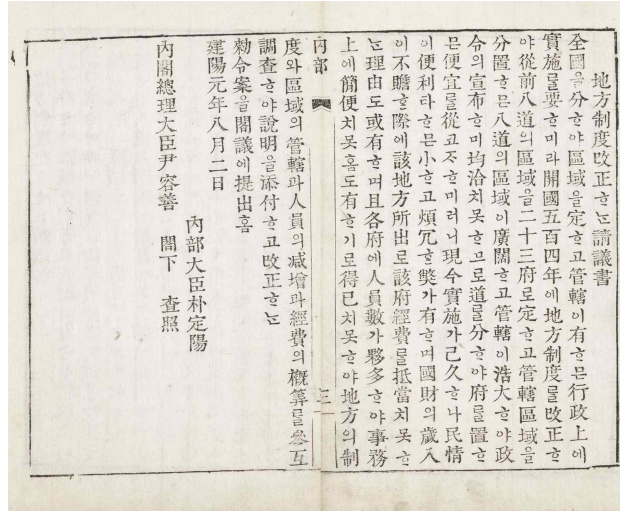 地方制度改正ᄒᆞᄂᆞᆫ請議書
全國을分ᄒᆞ야區域을定ᄒᆞ고管轄이有ᄒᆞᆷ은行政上에
實施를要ᄒᆞ미라開國五百四年에地方制度를改正ᄒᆞ
야從前八道의區域을二十三府로定ᄒᆞ고管轄區域을
分置ᄒᆞᆷ은八道의區域이廣闊ᄒᆞ고管轄이浩大ᄒᆞ야政
令의宣布ᄒᆞ미均洽치못ᄒᆞ므로道를分ᄒᆞ야府를置ᄒᆞ
믄便宜를從고ᄌᆞᄒᆞ미러니現今實施가已久ᄒᆞ나民情
이便利라ᄒᆞᆷ은小ᄒᆞ고煩冗ᄒᆞᆫ獘가有ᄒᆞ며國財의歲入
이不贍ᄒᆞᆫ際에該地方所出로該府經費를抵當치못ᄒᆞ
ᄂᆞᆫ理由도或有ᄒᆞ며且各府에人員數가夥多ᄒᆞ야事務
上에簡便치못ᄒᆞᆷ도有ᄒᆞ기로得已치못ᄒᆞ야地方의制
內部 三
度와區域의管轄과人員의减增과經費의槪筭를參互
調査ᄒᆞ야說明을添付ᄒᆞ고改正ᄒᆞᄂᆞᆫ
勅令案을閣議에提出홈
建陽元年八月二日
內部大臣朴定陽
內閣總理大臣尹容善 閤下 查照